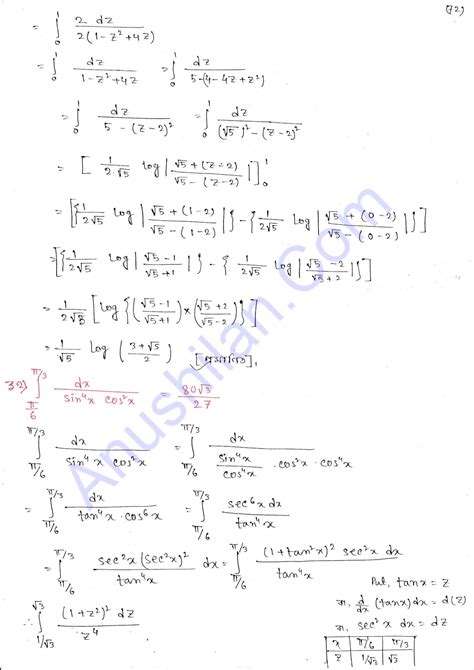 (72)
= ∫₀¹ 2 dz / 2(1-z²+4z)
= ∫₀¹ dz / 1-z²+4z = ∫₀¹ dz / 5-(4-4z+z²)
= ∫₀¹ dz / 5-(z-2)² = ∫₀¹ dz / (√5)²-(z-2)²
= [ 1/2·√5 log | √5+(z-2) / √5-(z-2) | ]₀¹
= [{ 1/2√5 log | √5+(1-2) / √5-(1-2) | } - { 1/2√5 log | √5+(0-2) / √5-(0-2) | }]
= [{ 1/2√5 log | √5-1 / √5+1 | } - { 1/2√5 log | √5-2 / √5+2 | }]
= 1/2√5 [ log { (√5-1 / √5+1) × (√5+2 / √5-2) } ]
= 1/√5 log ( 3+√5 / 2 ) [প্রমাণিত]
32) ∫_{π/6}^{π/3} dx / sin⁴x cos²x = 80√3 / 27
∫_{π/6}^{π/3} dx / sin⁴x cos²x = ∫_{π/6}^{π/3} dx / (sin⁴x / cos⁴x) · cos²x · cos⁴x
= ∫_{π/6}^{π/3} dx / tan⁴x · cos⁶x = ∫_{π/6}^{π/3} sec⁶x dx / tan⁴x
= ∫_{π/6}^{π/3} sec²x (sec²x)² / tan⁴x dx = ∫_{π/6}^{π/3} (1+tan²x)² sec²x dx / tan⁴x
Put, tanx = z
∴ ∫_{1/√3}^{√3} (1+z²)² dz / z⁴
বা, d/dx (tanx) dx = d(z)
বা, sec²x dx = dz
x π/6 π/3
z 1/√3 √3
Anushilan.Com